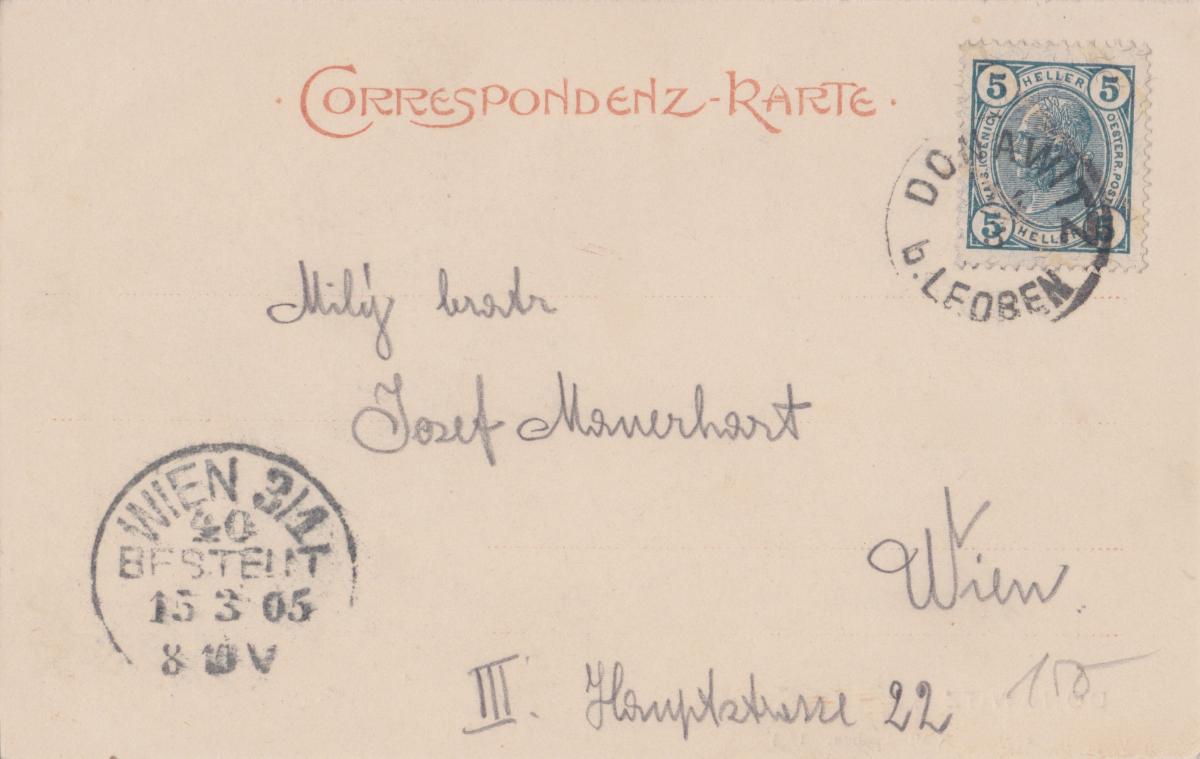 CORRESPONDENZ-KARTE
5 HELLER 5
KAIS. KOENIGL. OESTERR. POST
5 HELLER 5
DONAWITZ
b. LEOBEN
Milý bratr
Josef Mauerhart
Wien
III. Hauptstrasse 22
150
WIEN 3/1
40
BESTELLT
15 3 05
V